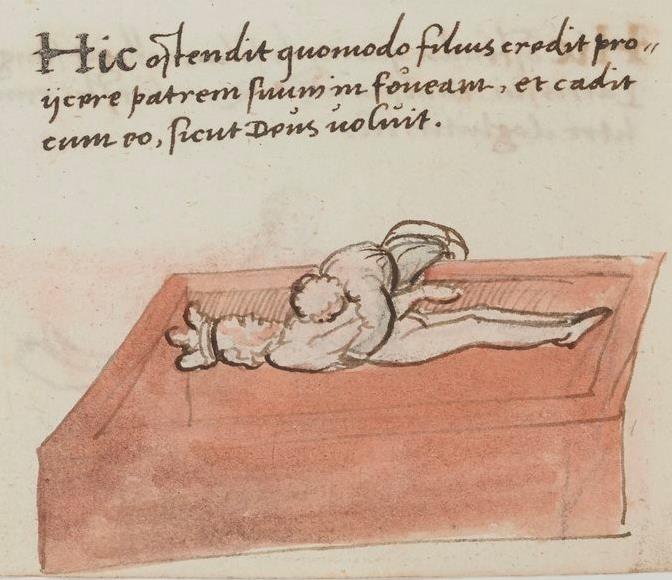 Hic ostendit quomodo filius credit pro„
ijcere patrem suum in foveam, et cadit
cum eo, sicut Deus voluit.